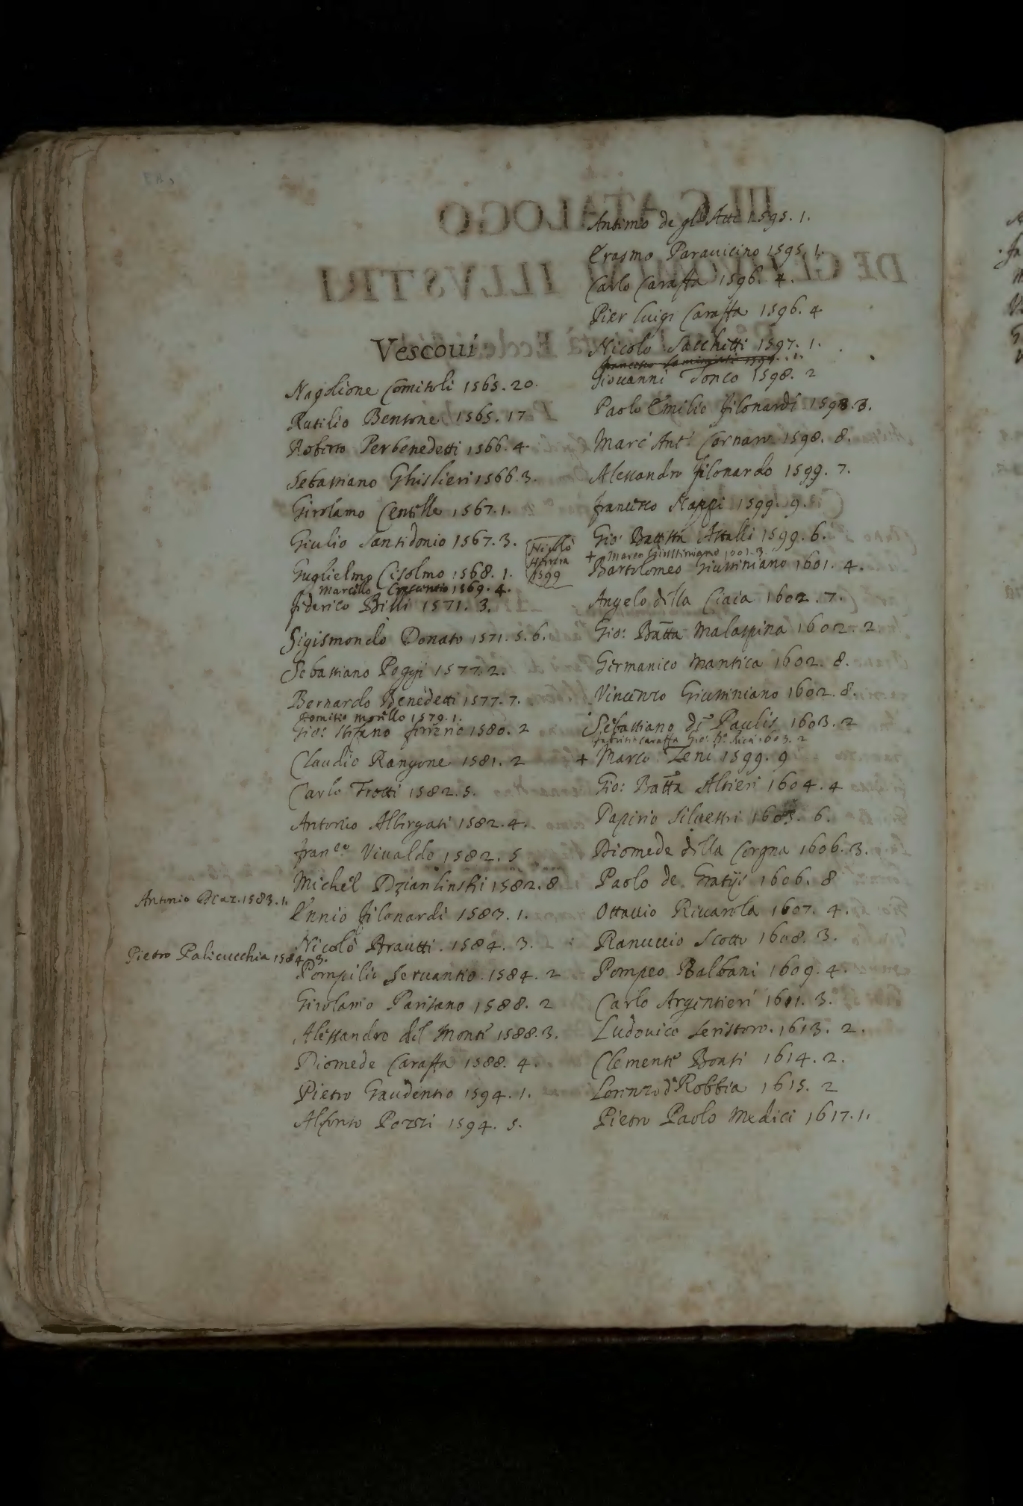 Vescoui
Napolione Comitoli 1565. 20.
Rutilio Benzone 1565. 17
Roberto Perbenedetti 1566. 4
Sebastiano Ghislieri 1566. 3.
Girolamo Centelle 1567. 1.
Giulio Santidonio 1567. 3.
Guglielmo Cisolmo 1568. 1.
Marcello Crescentio 1569. 4.
Federico Billi 1571. 3.
Sigismondo Donato 1571. 5. 6.
Sebastiano Poggi 1577. 2.
Bernardo Benedetti 1577. 7.
1579. 1.
Gio: Stefano ferrerio 1580. 2
Claudio Rangone 1581. 2
Carlo Trotti 1582. 5.
Antonio Albirgati 1582. 4.
fran.co Vivaldo 1582. 5
Michel Dzianlinski 1582. 8
Antonio 1583. 1.
Ennio filonardi 1583. 1.
Nicolò Brautti. 1584. 3.
Pietro Palicucchia 1584. 3.
Pompilio 1584. 2
Girolamo Parisano 1588. 2
Alessandro del Monte 1588. 3.
Diomede Caraffa 1588. 4.
Pietro Gaudentio 1594. 1.
Alfonso Pozzi 1594. 5.
Nicolò
1599
Antimo de gl' Atti 1595. 1.
Erasmo Parauicino 1595. 1.
Carlo Caraffa 1596. 4.
Pier luigi Caraffa 1596. 4
Nicolo Sacchetti 1597. 1.
Giouanni Tonco 1598. 2
Paolo Emilio filonardi 1598. 3.
Marc' Ant.o Cornaro 1598. 8.
Alessandro filonardo 1599. 7.
francesco 1599. 9.
Gio: Battista Attalli 1599. 6.
+ Marco Giustiniano 1601. 3
Bartolomeo Giustiniano 1601. 4.
Angelo della Ciaia 1602. 7.
Gio: Batta Malaspina 1602. 2
Germanico Mantica 1602. 8.
Vincenzo Giustiniano 1602. 8.
Sebastiano de Paulis 1603. 2
+ Marco Zeni 1599. 9
Gio: Batta Altieri 1604. 4
Papirio Siluestri 1605. 6.
Diomede della Corgna 1606. 3.
Paolo de Gratiji 1606. 8
Ottauio Riccarola 1607. 4.
Ranuccio Scotto 1608. 3.
Pompeo Balbani 1609. 4.
Carlo Argentieri 1611. 3.
Ludouico Seristoro. 1613. 2.
Clemente Bonti 1614. 2.
Lorenzo d. Robbia 1615. 2
Pietro Paolo Medici 1617. 1.